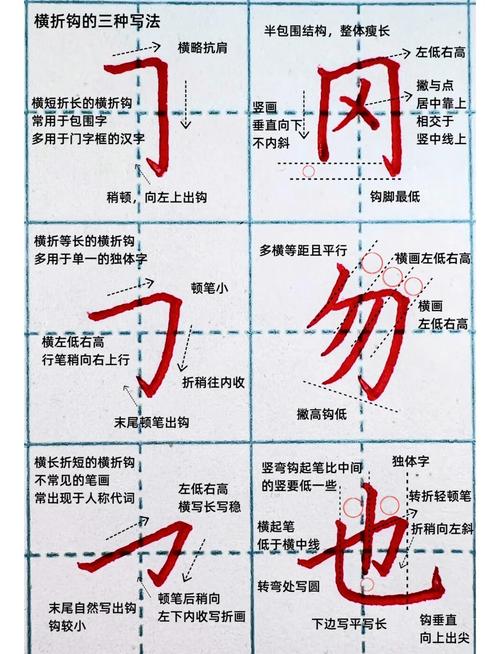 横折钩的三种写法
横略抗肩
横短折长的横折钩
常用于包围字
多用于门字框的汉字
稍顿，向左上出钩
半包围结构，整体瘦长
左低右高
撇与点
居中靠上
相交于
竖中线上
竖画
垂直向下
不内斜
冈
钩脚最低
横折等长的横折钩
多用于单一的独体字
顿笔小
横左低右高
行笔稍向右上行
折稍往内收
末尾顿笔出钩
多横等距且平行
横画左低右高
横画
左低右高
勿
撇高钩低
横长折短的横折钩
不常见的笔画
常出现于人称代词
左低右高
横写长写稳
末尾自然写出钩
钩较小
顿笔后稍向
左下内收写折画
竖弯钩起笔比中间
的竖要低一些
独体字
转折轻顿笔
折稍向左斜
横起笔
低于横中线
也
转弯处写圆
下边写平写长
钩垂直
向上出尖